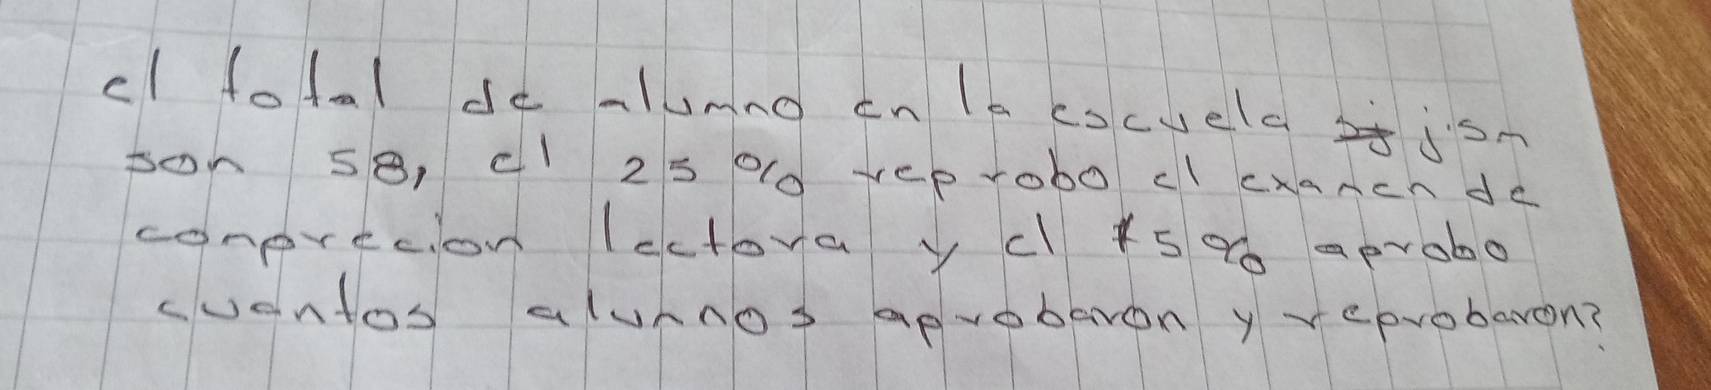 el total de alumno en la escuela jsm
son 58, el 25% reprobo el examen de
comprecion lectora y el 75% aprobo
cuantos alumnos aprobaron y reprobaron?